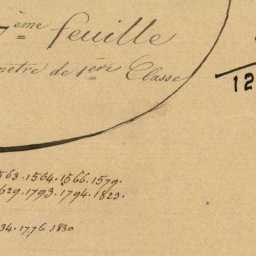 7ème feuille
mètre de 1ère Classe
12
1563. 1564. 1566. 1579.
1629. 1793. 1794. 1823.
34. 1776. 1830